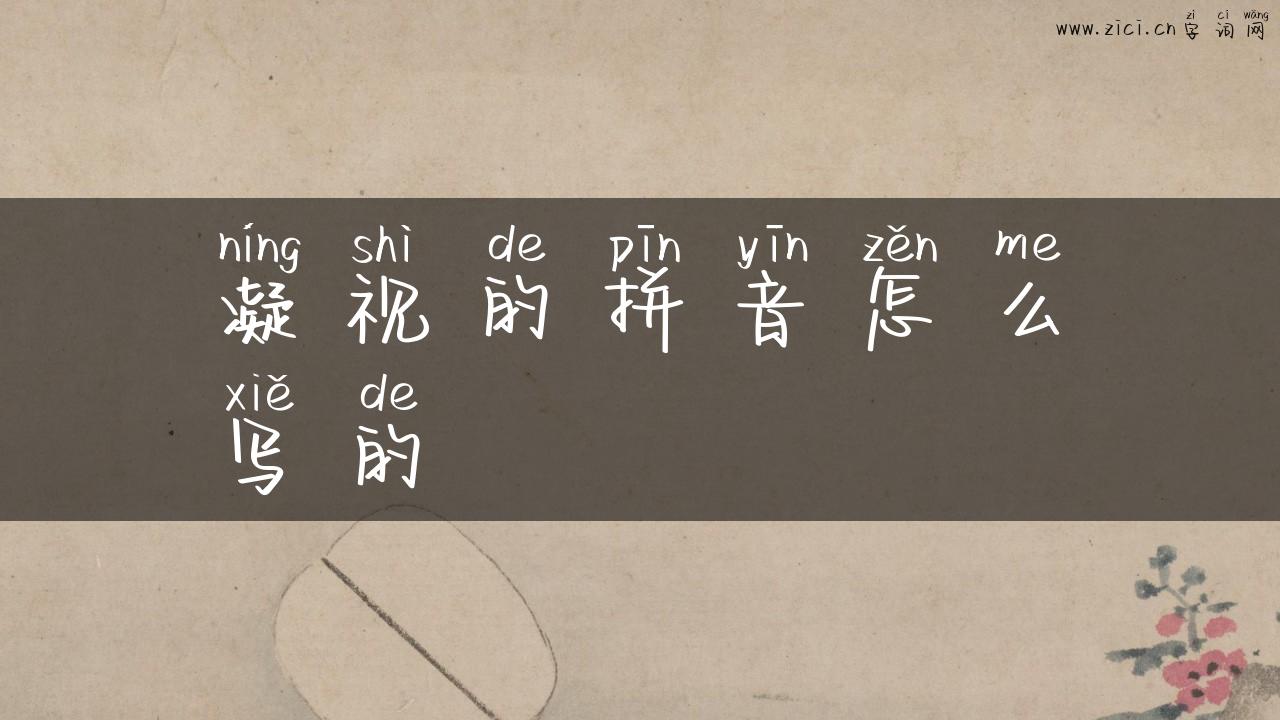 zì cí wǎng
www.zici.cn字词网
níng shì de pīn yīn zěn me
凝视的拼音怎么
xiě de
写的